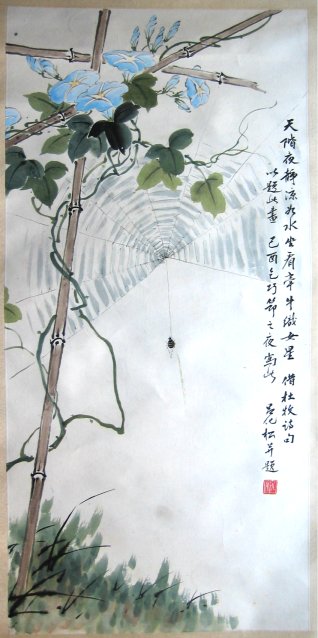 天階夜静涼如水坐看牽牛織女星 借杜牧詩句
以題此畫 己酉乞巧節之夜寫此
呂化松並題